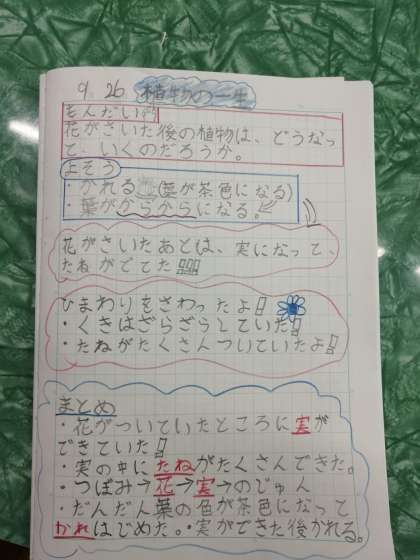 9 26 植物の一生
もんだい
花がさいた後の植物は、どうなっ
て、いくのだろうか。
よそう
・かれる (葉が茶色になる)
・葉がからからになる。
花がさいたあとは、実になって、
たねがでてた!!!
ひまわりをさわったよ!
・くきはざらざらしていた!
・たねがたくさんついていたよ!
まとめ
・花がついていたところに実が
できていた!
・実の中にたねがたくさんできた。
・つぼみ→花→実→のじゅん
・だんだん葉の色が茶色になって
かれはじめた。・実ができた後かれる。